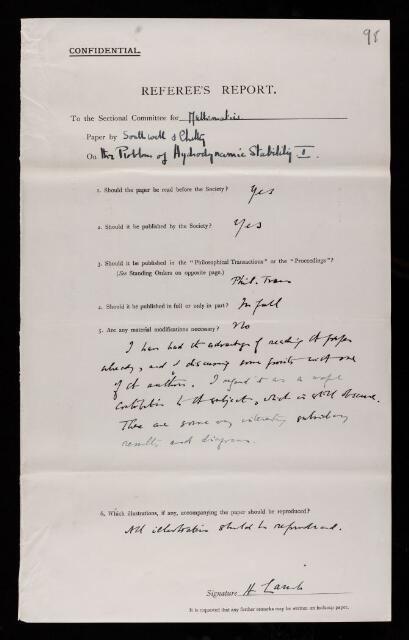 98
CONFIDENTIAL.
REFEREE'S REPORT.
To the Sectional Committee for Mathematics
Paper by Southwell & Chitty
On the Problem of Hydrodynamic Stability I.
1. Should the paper be read before the Society? Yes
2. Should it be published by the Society? Yes
3. Should it be published in the "Philosophical Transactions" or the "Proceedings"?
(See Standing Orders on opposite page.)
Phil. Trans
4. Should it be published in full or only in part? In full
5. Are any material modifications necessary? No
I have had the advantage of reading the paper
already, and of discussing some points with one
of the authors. I regard it as a
contribution to the subject, which is still obscure.
There are some very interesting subsidiary
results and diagrams.
6. Which illustrations, if any, accompanying the paper should be reproduced?
All illustrations should be reproduced.
Signature H Lamb
It is requested that any further remarks may be written on foolscap paper.